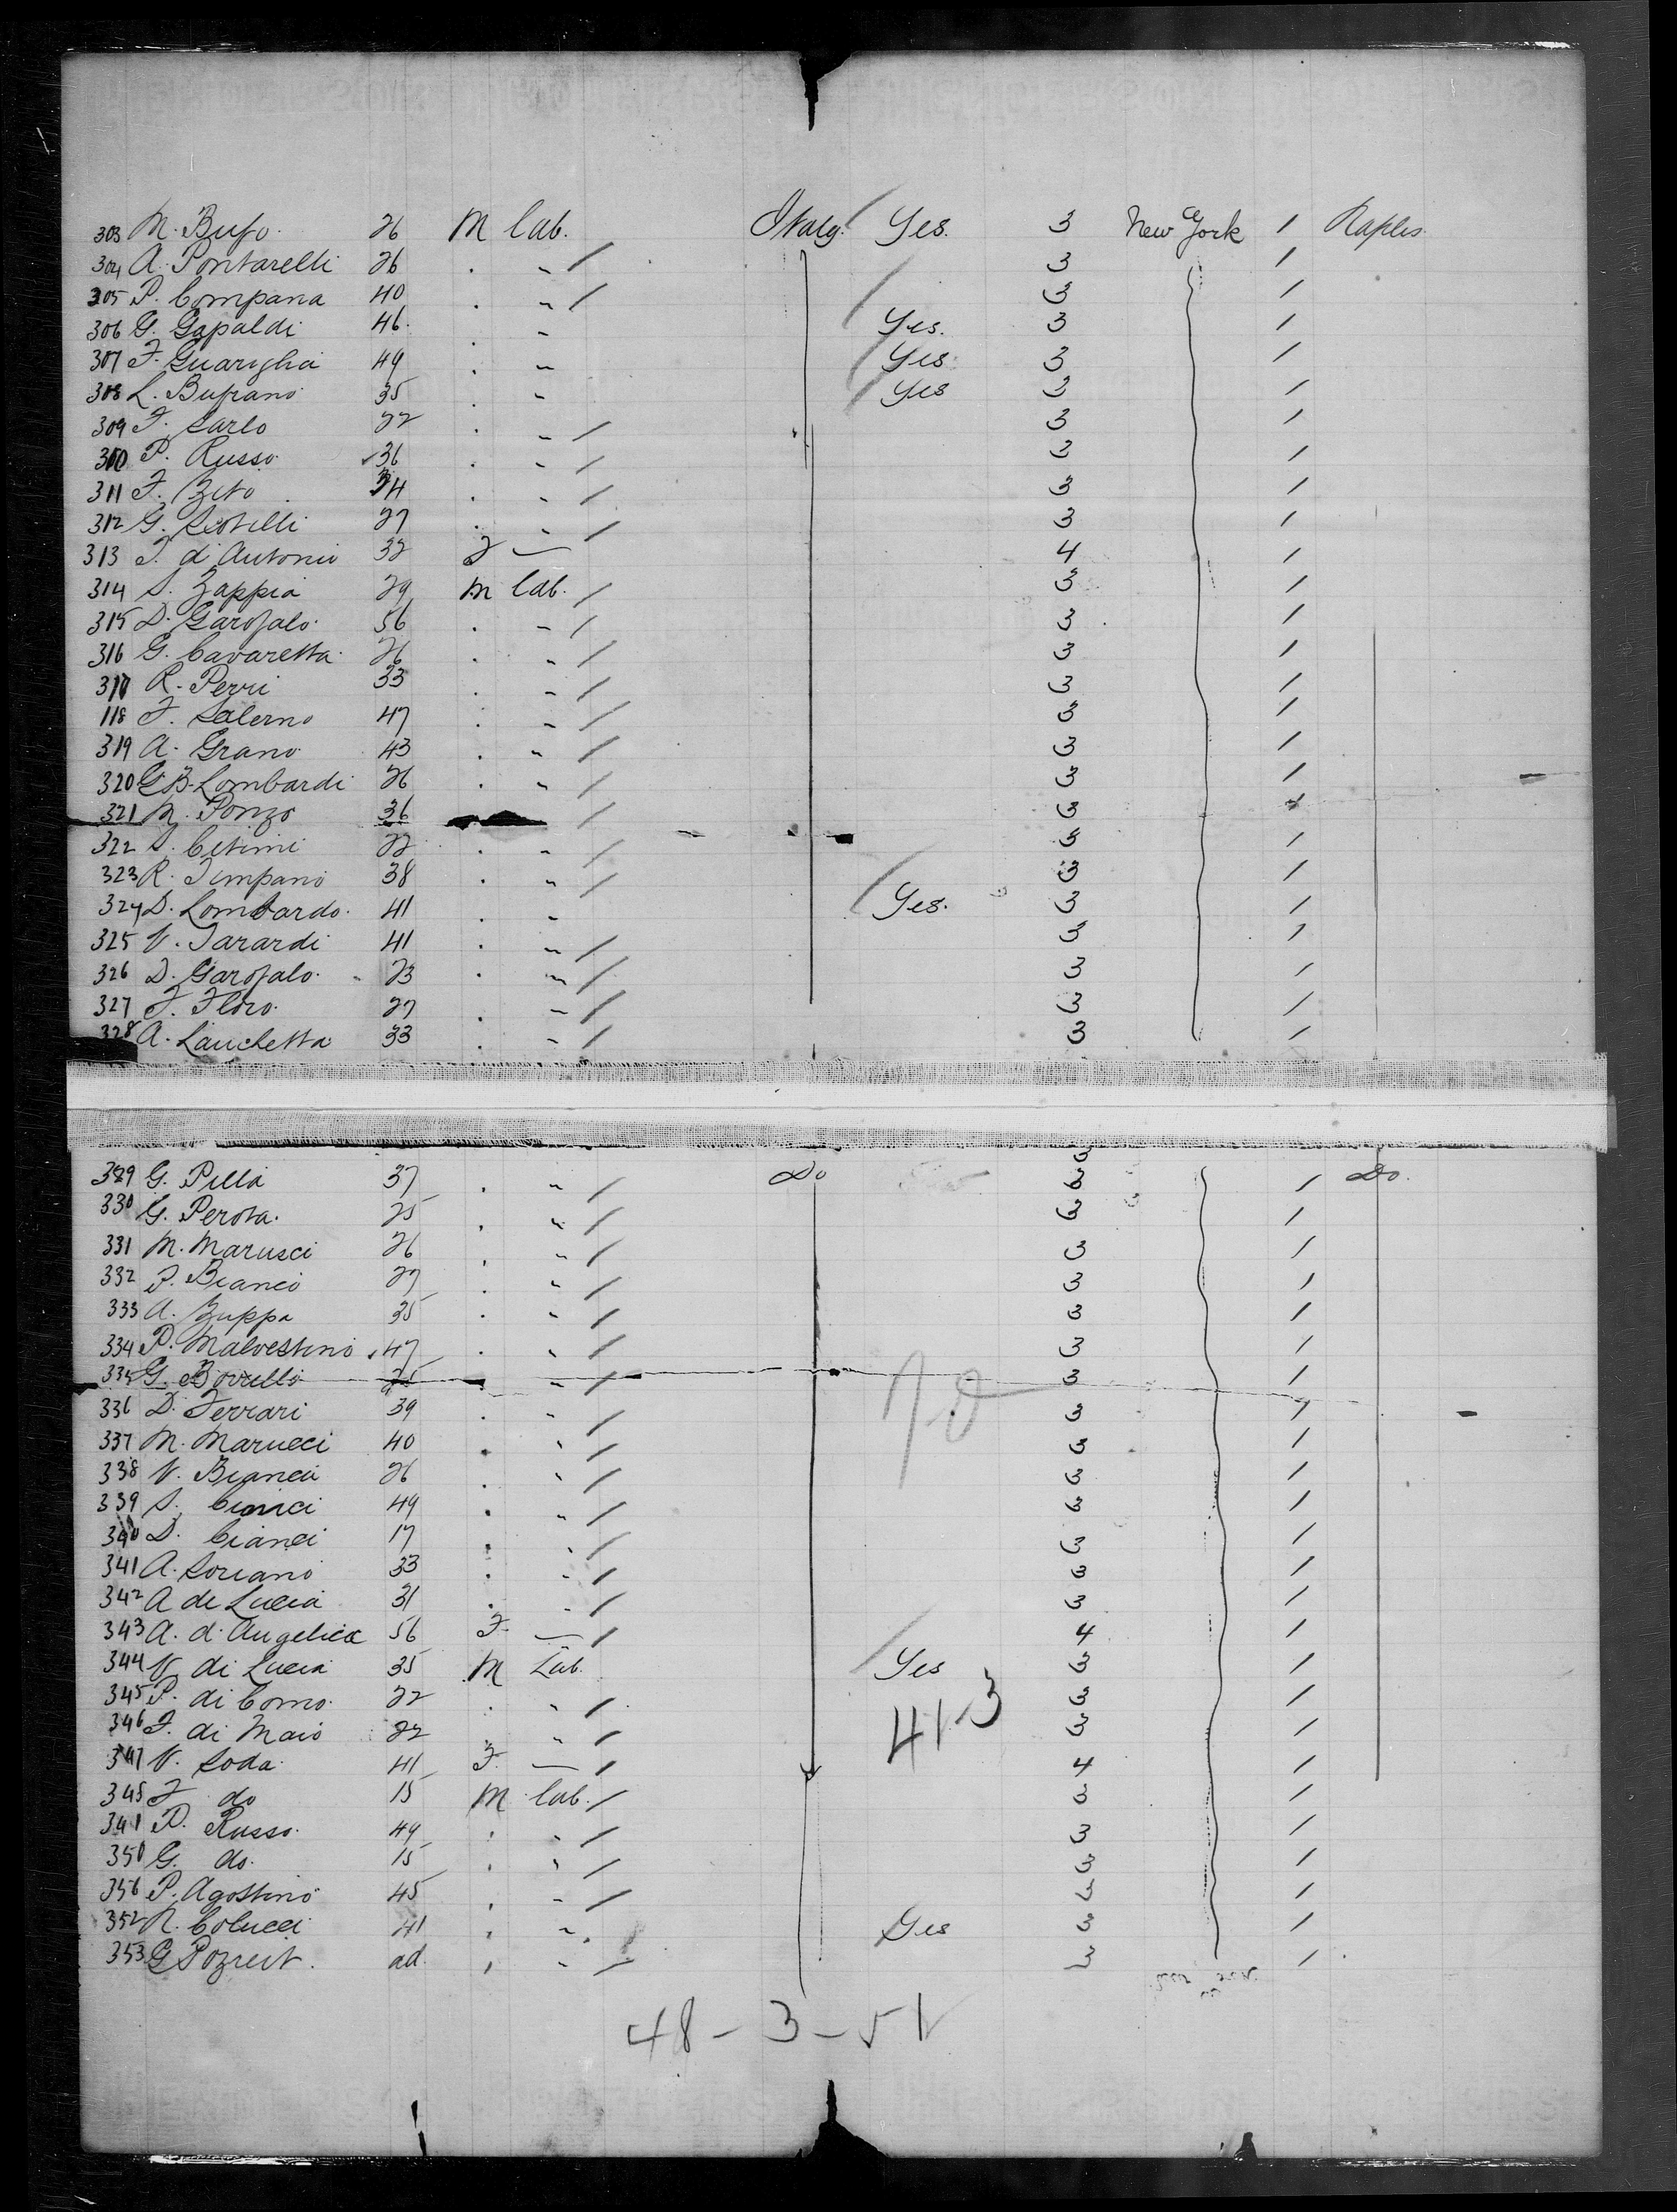 303 M. Bufo. 26 M lab. Italy. Yes. 3 New York 1 Naples.
304 A. Pontarelli 26 . " / 3 /
305 P. Compana 40 . " / 3 /
306 G. Gapaldi 46. . " Yes. 3 /
307 F. Guariglia 49 . " Yes. 3 /
308 L. Bufano 35 . " Yes 3 /
309 F. Sarlo 22 . " / 3 /
310 P. Russo. 36 . " / 3 /
311 F. Zito 34 . " / 3 /
312 G. 27 . " / 3 /
313 T. d'Antonio 32 F — 4 /
314 S. Zappia 29 M lab. / 3 /
315 D. Garofalo. 56 . " / 3 /
316 G. Cavaretta. 26 . " / 3 /
317 R. Perri 33 . " / 3 /
118 F. Salerno 47 . " / 3 /
319 A. Grano 43 . " / 3 /
320 G.B. Lombardi 26 . " / 3 /
321 M. Ponzo 36 / 3 /
322 S. Cetimi 22 . " / 3 /
323 R. Timpano 38 . " / 3 /
324 D. Lombardo. 41 . " Yes. 3 /
325 V. Tarardi 41 . " / 3 /
326 D. Garofalo. 23 . " / 3 /
327 F. Floro. 27 . " / 3 /
328 A. Lanchetta 33 . " / 3 /
3
329 G. Pilla 37 . " / Do 3 / Do.
330 G. Perota. 25 . " / 3 /
331 M. Marusci 26 . " / 3 /
332 P. Bianco 27 . " / 3 /
333 A. Zuppa 35 . " / 3 /
334 P. Malvestino 47 . " / 3 /
335 G. Bovello 25 " / 3 /
336 D. Ferrari 39 . " / 3 /
337 M. Marucci 40 . " / 3 /
338 V. Bianca 26 . " / 3 /
339 S. 49 . " / 3 /
340 D. Cianci 17 . " / 3 /
341 A. Soriano 33 . " / 3 /
342 A de Lucia 31 . " / 3 /
343 A. d'Angelica 56 F. — / 4 /
344 V di Lucia 35 M Lab. Yes 3 /
345 P. di Como. 22 . " / 3 /
41-3
346 F. di Maio 22 . " / 3 /
347 V. Soda. 41 F. — / 4 /
348 F do 15 M lab. / 3 /
341 P. Russo. 49 . " / 3 /
350 G. do. 15 . " / 3 /
356 P. Agostino 45 . " / 3 /
352 N. Colucci 41 . " Yes 3 /
353 G ad. . " / 3 /
48-3-51